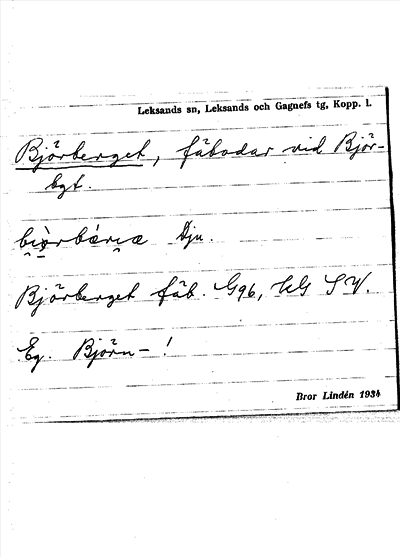 Leksands sn, Leksands och Gagnefs tg, Kopp. l.
Björberget, fäbodar vid Björ-
bgt.
biòrbárıæ Dju.
Björberget fäb. G96, KG SV.
Eg. Björn- !
Bror Lindén 1934